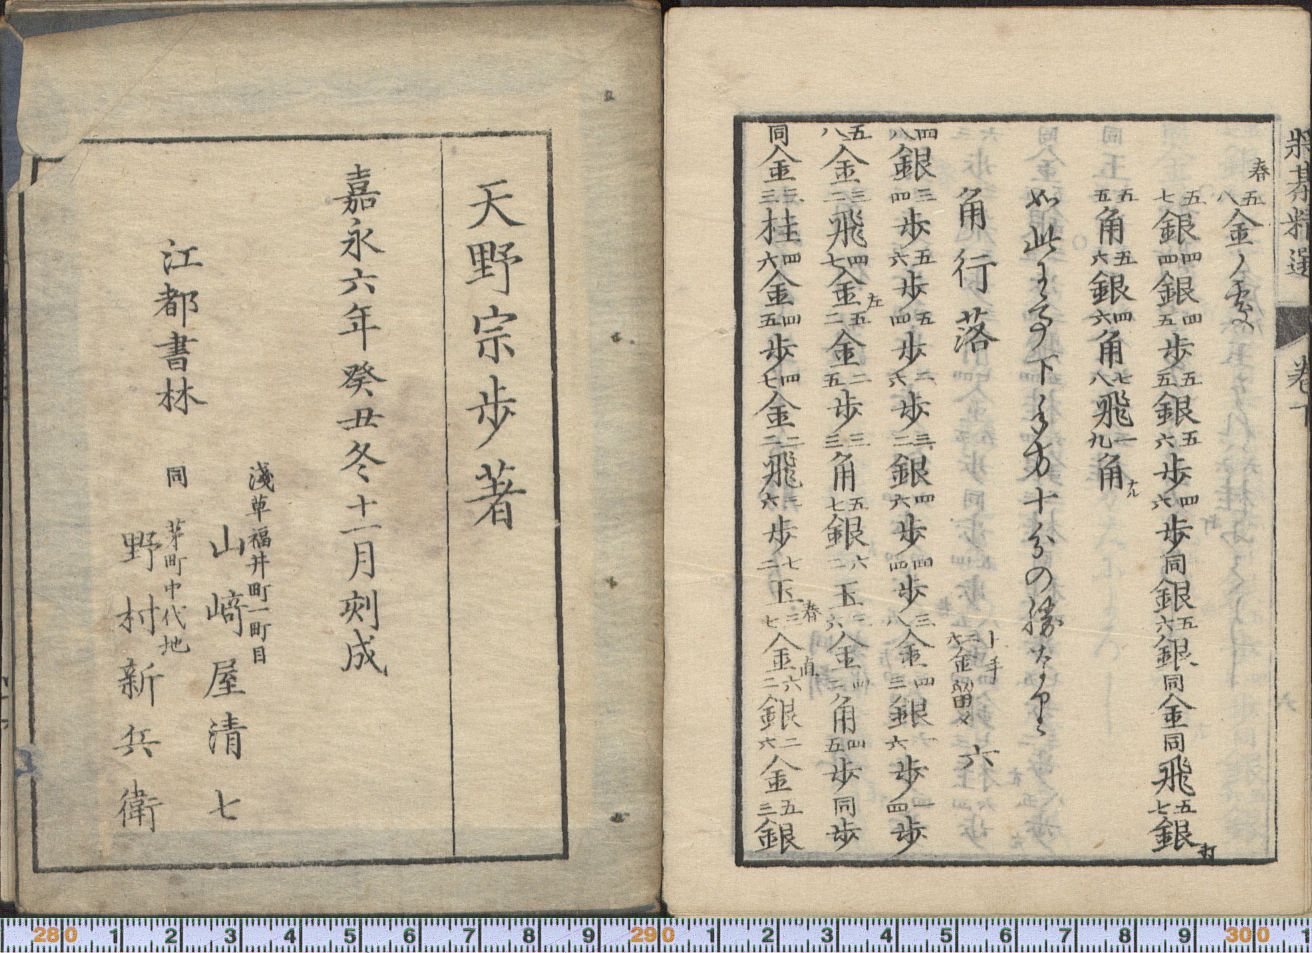 將棊精選 巻下
五八金ノ
五七銀 四四銀 四五歩 五五銀 五六歩 四六歩 同銀 五六銀 同金 同飛 五七銀打
五五角 五六銀 四六角 七八飛 一九角ナル
如此 下手方十分の勝
角行落 六
四八銀 三四歩 五六歩 五四歩 二六歩 三二銀 四六歩 四四歩 三八金 四三銀 六歩 四歩
五八金 三二飛 四七金左 五二金 二五歩 三三角 五七銀 六二玉 金 角 四五歩 同歩
同金 三三桂 四六金 四五歩 四七金 二二飛 三六歩 七二玉 三七金 六二銀 二六金 五三銀
天野宗歩著
嘉永六年癸丑冬十一月刻成
淺草福井町一町目
山﨑屋清七
江都書林
同 茅町中代地
野村新兵衛
280 1 2 3 4 5 6 7 8 9 290 1 2 3 4 5 6 7 8 9 300 1